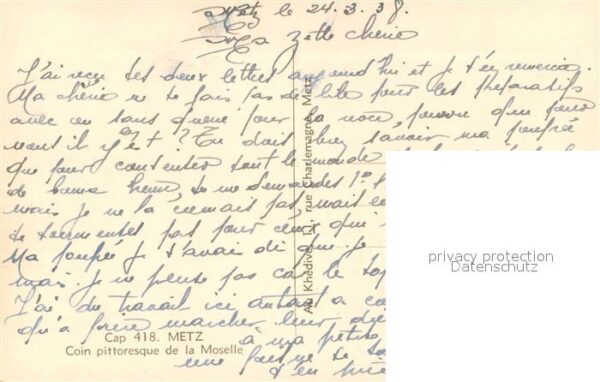 Metz le 24.3.38.
Ma Zette chérie
J'ai reçu tes deux lettres aujourd'hui et je t'en remercie.
Ma chérie ne te fais pas de bile pour les préparatifs
avec ou sans queue pour la noce pourvu que pour
nous il y est ? Tu dois bien savoir ma poupée
que pour contenter tout le monde
de bonne heure, tu me demandes 1°
mais je ne la connais pas, mais
te tourmentes pas pour ceux qui
Ma poupée je t'avais dit que je
mai. je ne pense pas car le
J'ai du travail ici autant a
qu'a faire marcher leur
à ma petite
une fois ne te
d'en
Cap 418. METZ
Coin pittoresque de la Moselle
Au Khédive, rue Charlemagne, Metz
privacy protection
Datenschutz